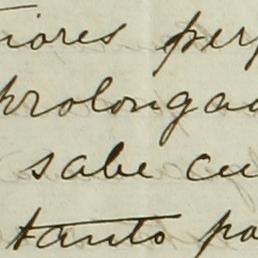 riores per
prolongad
sabe cu
tanto po